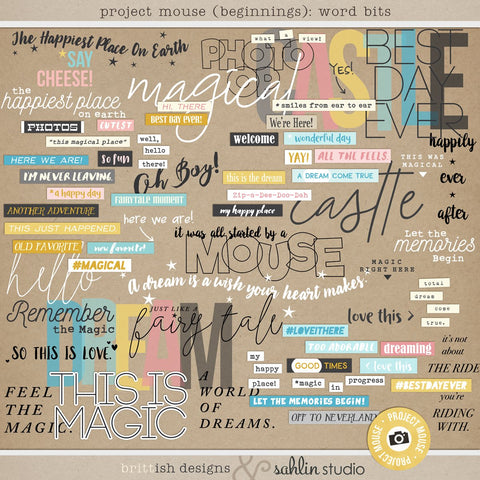 project mouse (beginnings): word bits
The Happiest Place On Earth
SAY
CHEESE!
the
happiest place
on earth
magical
PHOTO
what a view!
Yes!
CASTLE
BEST
DAY
EVER
HI, THERE
BEST DAY EVER!
* smiles from ear to ear
We're Here!
PHOTOS
CUTEST
"this magical place"
well,
hello
there!
welcome
wonderful day
YAY!
ALL THE FEELS.
THIS WAS
MAGICAL
happily
ever
after
HERE WE ARE!
SO FUN
I'M NEVER LEAVING
Oh Boy!
this is the dream
A DREAM COME TRUE
Zip-a-Dee-Doo-Dah
my happy place
castle
*a happy day
Fairytale moment
ANOTHER ADVENTURE
here we are!
THIS JUST HAPPENED
OLD FAVORITE
new favorite!
#MAGICAL
hello
it was all started by a
MOUSE
Let the
memories
Begin
MAGIC
RIGHT HERE
A dream is a wish your heart makes.
total
dream
come
true.
Remember
the Magic
JUST LIKE A
fairy tale
DREAM
love this >
#LOVEITHERE
TOO ADORABLE
dreaming
it's not
about
THE RIDE
.SO THIS IS LOVE
my
happy
place!
GOOD TIMES
< love this
*magic
in
progress
#BESTDAYEVER
LET THE MEMORIES BEGIN!
OFF TO NEVERLAND
you're
RIDING
WITH.
FEEL
THE
MAGIC.
THIS IS
MAGIC
A
WORLD
OF
DREAMS.
PROJECT MOUSE
PROJECT MOUSE
brittish designs & sahlin studio